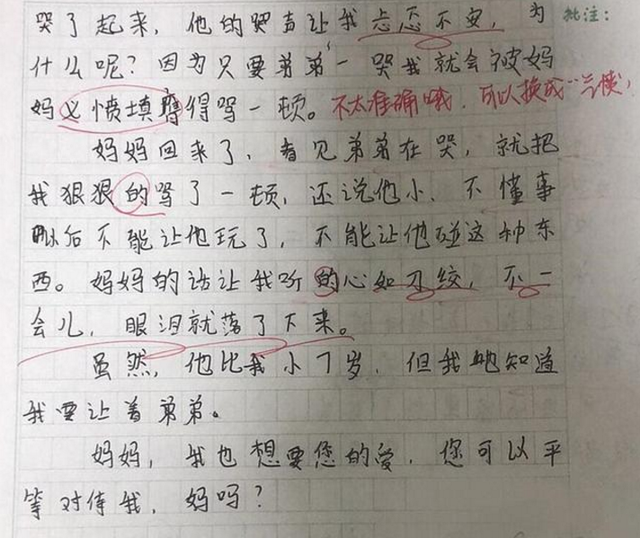 哭了起来，他的哭声让我忐忑不安，为
批注：
什么呢？因为只要弟弟一哭我就会被妈
妈义愤填膺得骂一顿。
不太准确哦，可以换成"气愤"
妈妈回来了，看见弟弟在哭，就把
我狠狠的骂了一顿，还说他小，不懂事
以后不能让他玩了，不能让他碰这种东
西。妈妈的话让我听的心如刀绞，不一
会儿，眼泪就落了下来。
虽然，他比我小7岁，但我她知道
我要让着弟弟。
妈妈，我也想要您的爱，您可以平
等对待我，妈吗？